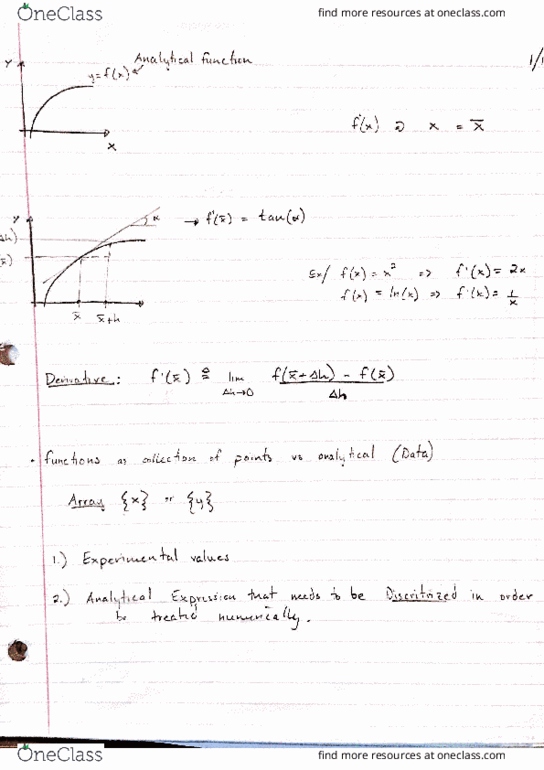 OneClass
find more resources at oneclass.com
Analytical function
1/
y
y=f(x)
x
f'(x) @ x = x̄
y
α
→ f'(x̄) = tan(α)
x̄ x̄+h
Ex/ f(x) = x² => f'(x) = 2x
f(x) = ln(x) => f'(x) = 1/x
Derivative: f'(x̄) ≙ lim Δh→0 f(x̄+Δh) - f(x̄) / Δh
• functions as collection of points vs analytical (Data)
Array {x} {y}
1.) Experimental values
2.) Analytical Expression that needs to be Discritized in order
to treated numerically.
OneClass
find more resources at oneclass.com